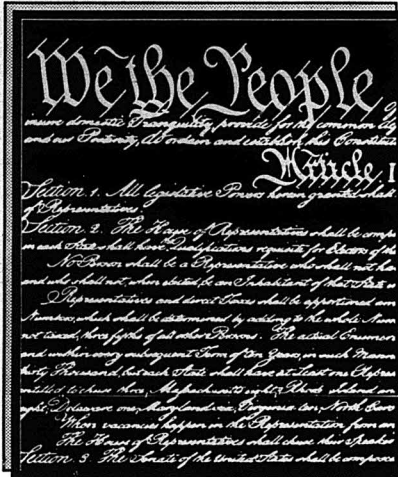 We the People of
insure domestic Tranquility, provide for the common
and our Posterity, do ordain and establish this Constitution
Article I
Section 1. All legislative Powers herein granted shall
of Representatives.
Section 2. The House of Representatives shall be compo
in each State shall have Qualifications requisite for Electors of the
No Person shall be a Representative who shall not ha
and who shall not, when elected, be an Inhabitant of that State
Representatives and direct Taxes shall be apportioned am
Numbers, which shall be determined by adding to the whole Num
not taxed, three fifths of all other Persons. The actual Enumer
and within every subsequent Term of ten Years, in such Mann
thirty Thousand, but each State shall have at Least one Repres
entitled to chuse three, Massachusetts eight, Rhode Island an
eight, Delaware one, Maryland six, Virginia ten, North Caro
When vacancies happen in the Representation from an
The House of Representatives shall chuse their Speaker
Section 3 The Senate of the United States shall be compose